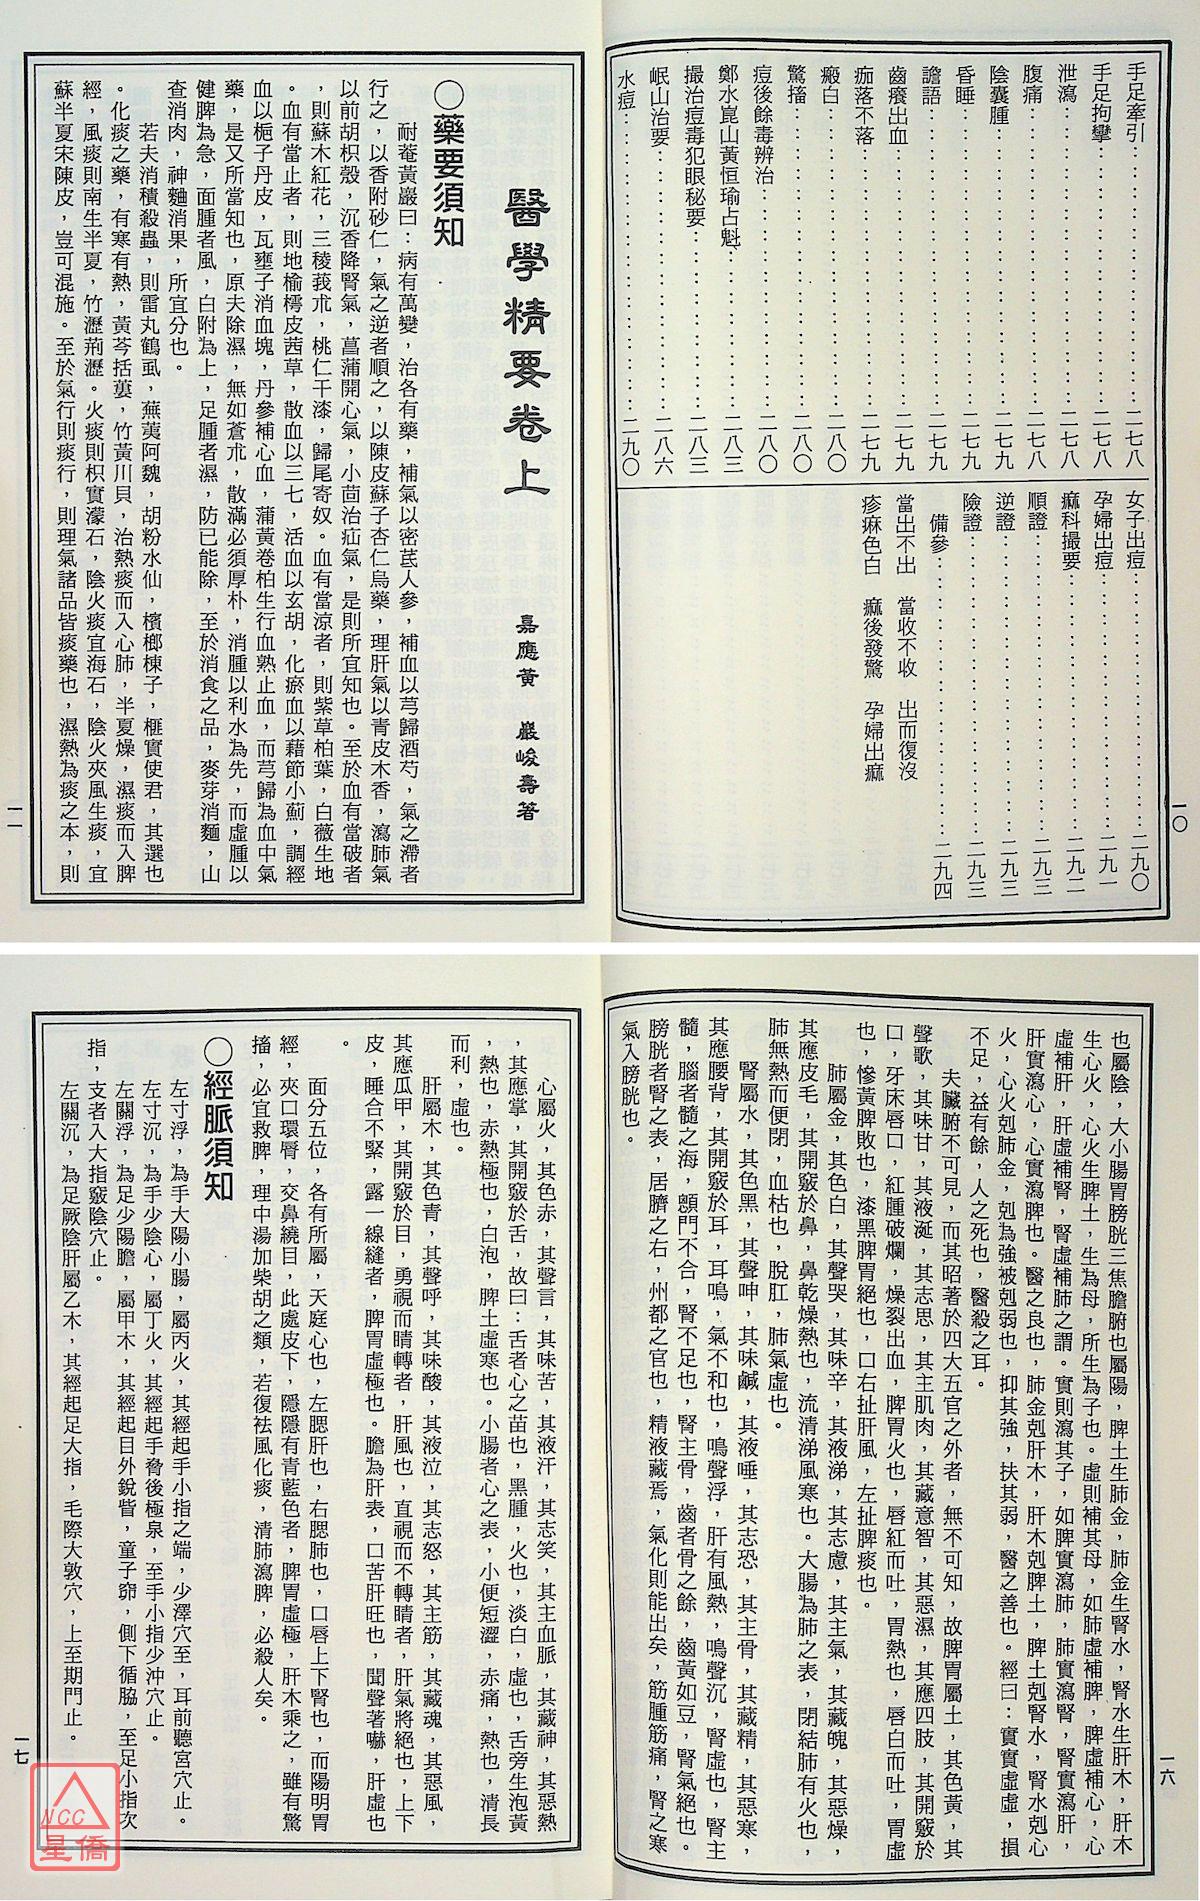 手足牽引……二七八
手足拘攣……二七八
泄瀉……二七八
腹痛……二七八
陰囊腫……二七九
昏睡……二七九
譫語……二七九
齒癈出血……二七九
痂落不落……二七九
瘢白……二八〇
驚搐……二八〇
痘後餘毒辨治……二八〇
鄭水崑山黃恒瑜占魁……二八三
撮治痘毒犯眼秘要……二八三
岷山治要……二八六
水痘……二九〇
女子出痘……二九〇
孕婦出痘……二九一
痲科撮要……二九二
順證……二九三
逆證……二九三
險證……二九三
備參……二九四
當出不出　當收不收　出而復沒
疹痳色白　痲後發驚　孕婦出痲
一〇
醫學精要卷上
嘉應黃　巖峻壽著
〇藥要須知
耐菴黃巖曰：病有萬變，治各有藥，補氣以密芪人參，補血以芎歸酒芍，氣之滯者
行之，以香附砂仁，氣之逆者順之，以陳皮蘇子杏仁烏藥，理肝氣以青皮木香，瀉肺氣
以前胡枳殼，沉香降腎氣，菖蒲開心氣，小茴治疝氣，是則所宜知也。至於血有當破者
，則蘇木紅花，三稜莪朮，桃仁干漆，歸尾寄奴。血有當涼者，則紫草柏葉，白薇生地
。血有當止者，則地榆樗皮茜草，散血以三七，活血以玄胡，化瘀血以藉節小薊，調經
血以梔子丹皮，瓦壅子消血塊，丹參補心血，蒲黃卷柏生行血熟止血，而芎歸為血中氣
藥，是又所當知也，原夫除濕，無如蒼朮，散滿必須厚朴，消腫以利水為先，而虛腫以
健脾為急，面腫者風，白附為上，足腫者濕，防已能除，至於消食之品，麥芽消麵，山
查消肉，神麯消果，所宜分也。
若夫消積殺蟲，則雷丸鶴虱，蕪荑阿魏，胡粉水仙，檳榔楝子，榧實使君，其選也
。化痰之藥，有寒有熱，黃芩括蔞，竹黃川貝，治熱痰而入心肺，半夏燥，濕痰而入脾
經，風痰則南生半夏，竹瀝荊瀝。火痰則枳實濛石，陰火痰宜海石，陰火夾風生痰，宜
蘇半夏宋陳皮，豈可混施。至於氣行則痰行，則理氣諸品皆痰藥也，濕熱為痰之本，則
一一
也屬陰，大小腸胃膀胱三焦膽腑也屬陽，脾土生肺金，肺金生腎水，腎水生肝木，肝木
生心火，心火生脾土，生為母，所生為子也。虛則補其母，如肺虛補脾，脾虛補心，心
虛補肝，肝虛補腎，腎虛補肺之謂。實則瀉其子，如脾實瀉肺，肺實瀉腎，腎實瀉肝，
肝實瀉心，心實瀉脾也。醫之良也，肺金剋肝木，肝木剋脾土，脾土剋腎水，腎水剋心
火，心火剋肺金，剋為強被剋弱也，抑其強，扶其弱，醫之善也。經曰：實實虛虛，損
不足，益有餘，人之死也，醫殺之耳。
夫臟腑不可見，而其昭著於四大五官之外者，無不可知，故脾胃屬土，其色黃，其
聲歌，其味甘，其液涎，其志思，其主肌肉，其藏意智，其惡濕，其應四肢，其開竅於
口，牙床唇口，紅腫破爛，燥裂出血，脾胃火也，唇紅而吐，胃熱也，唇白而吐，胃虛
也，慘黃脾敗也，漆黑脾胃絕也，口右扯肝風，左扯脾痰也。
肺屬金，其色白，其聲哭，其味辛，其液涕，其志慮，其主氣，其藏魄，其惡燥，
其應皮毛，其開竅於鼻，鼻乾燥熱也，流清涕風寒也。大腸為肺之表，閉結肺有火也，
肺無熱而便閉，血枯也，脫肛，肺氣虛也。
腎屬水，其色黑，其聲呻，其味鹹，其液唾，其志恐，其主骨，其藏精，其惡寒，
其應腰背，其開竅於耳，耳鳴，氣不和也，鳴聲浮，肝有風熱，鳴聲沉，腎虛也，腎主
髓，腦者髓之海，顖門不合，腎不足也，腎主骨，齒者骨之餘，齒黃如豆，腎氣絕也。
膀胱者腎之表，居臍之右，州都之官也，精液藏焉，氣化則能出矣，筋腫筋痛，腎之寒
氣入膀胱也。
一六
心屬火，其色赤，其聲言，其味苦，其液汗，其志笑，其主血脈，其藏神，其惡熱
，其應掌，其開竅於舌，故曰：舌者心之苗也，黑腫，火也，淡白，虛也，舌旁生泡黃
，熱也，赤熱極也，白泡，脾土虛寒也。小腸者心之表，小便短澀，赤痛，熱也，清長
而利，虛也。
肝屬木，其色青，其聲呼，其味酸，其液泣，其志怒，其主筋，其藏魂，其惡風，
其應瓜甲，其開竅於目，勇視而睛轉者，肝風也，直視而不轉睛者，肝氣將絕也，上下
皮，睡合不緊，露一線縫者，脾胃虛極也。膽為肝表，口苦肝旺也，聞聲著嚇，肝虛也
。
面分五位，各有所屬，天庭心也，左腮肝也，右腮肺也，口唇上下腎也，而陽明胃
經，夾口環脣，交鼻繞目，此處皮下，隱隱有青藍色者，脾胃虛極，肝木乘之，雖有驚
搐，必宜救脾，理中湯加柴胡之類，若復祛風化痰，清肺瀉脾，必殺人矣。
〇經脈須知
左寸浮，為手大陽小腸，屬丙火，其經起手小指之端，少澤穴至，耳前聽宮穴止。
左寸沉，為手少陰心，屬丁火，其經起手脅後極泉，至手小指少沖穴止。
左關浮，為足少陽膽，屬甲木，其經起目外銳眥，童子窌，側下循脇，至足小指次
指，支者入大指竅陰穴止。
左關沉，為足厥陰肝屬乙木，其經起足大指，毛際大敦穴，上至期門止。
一七
NCC
星僑